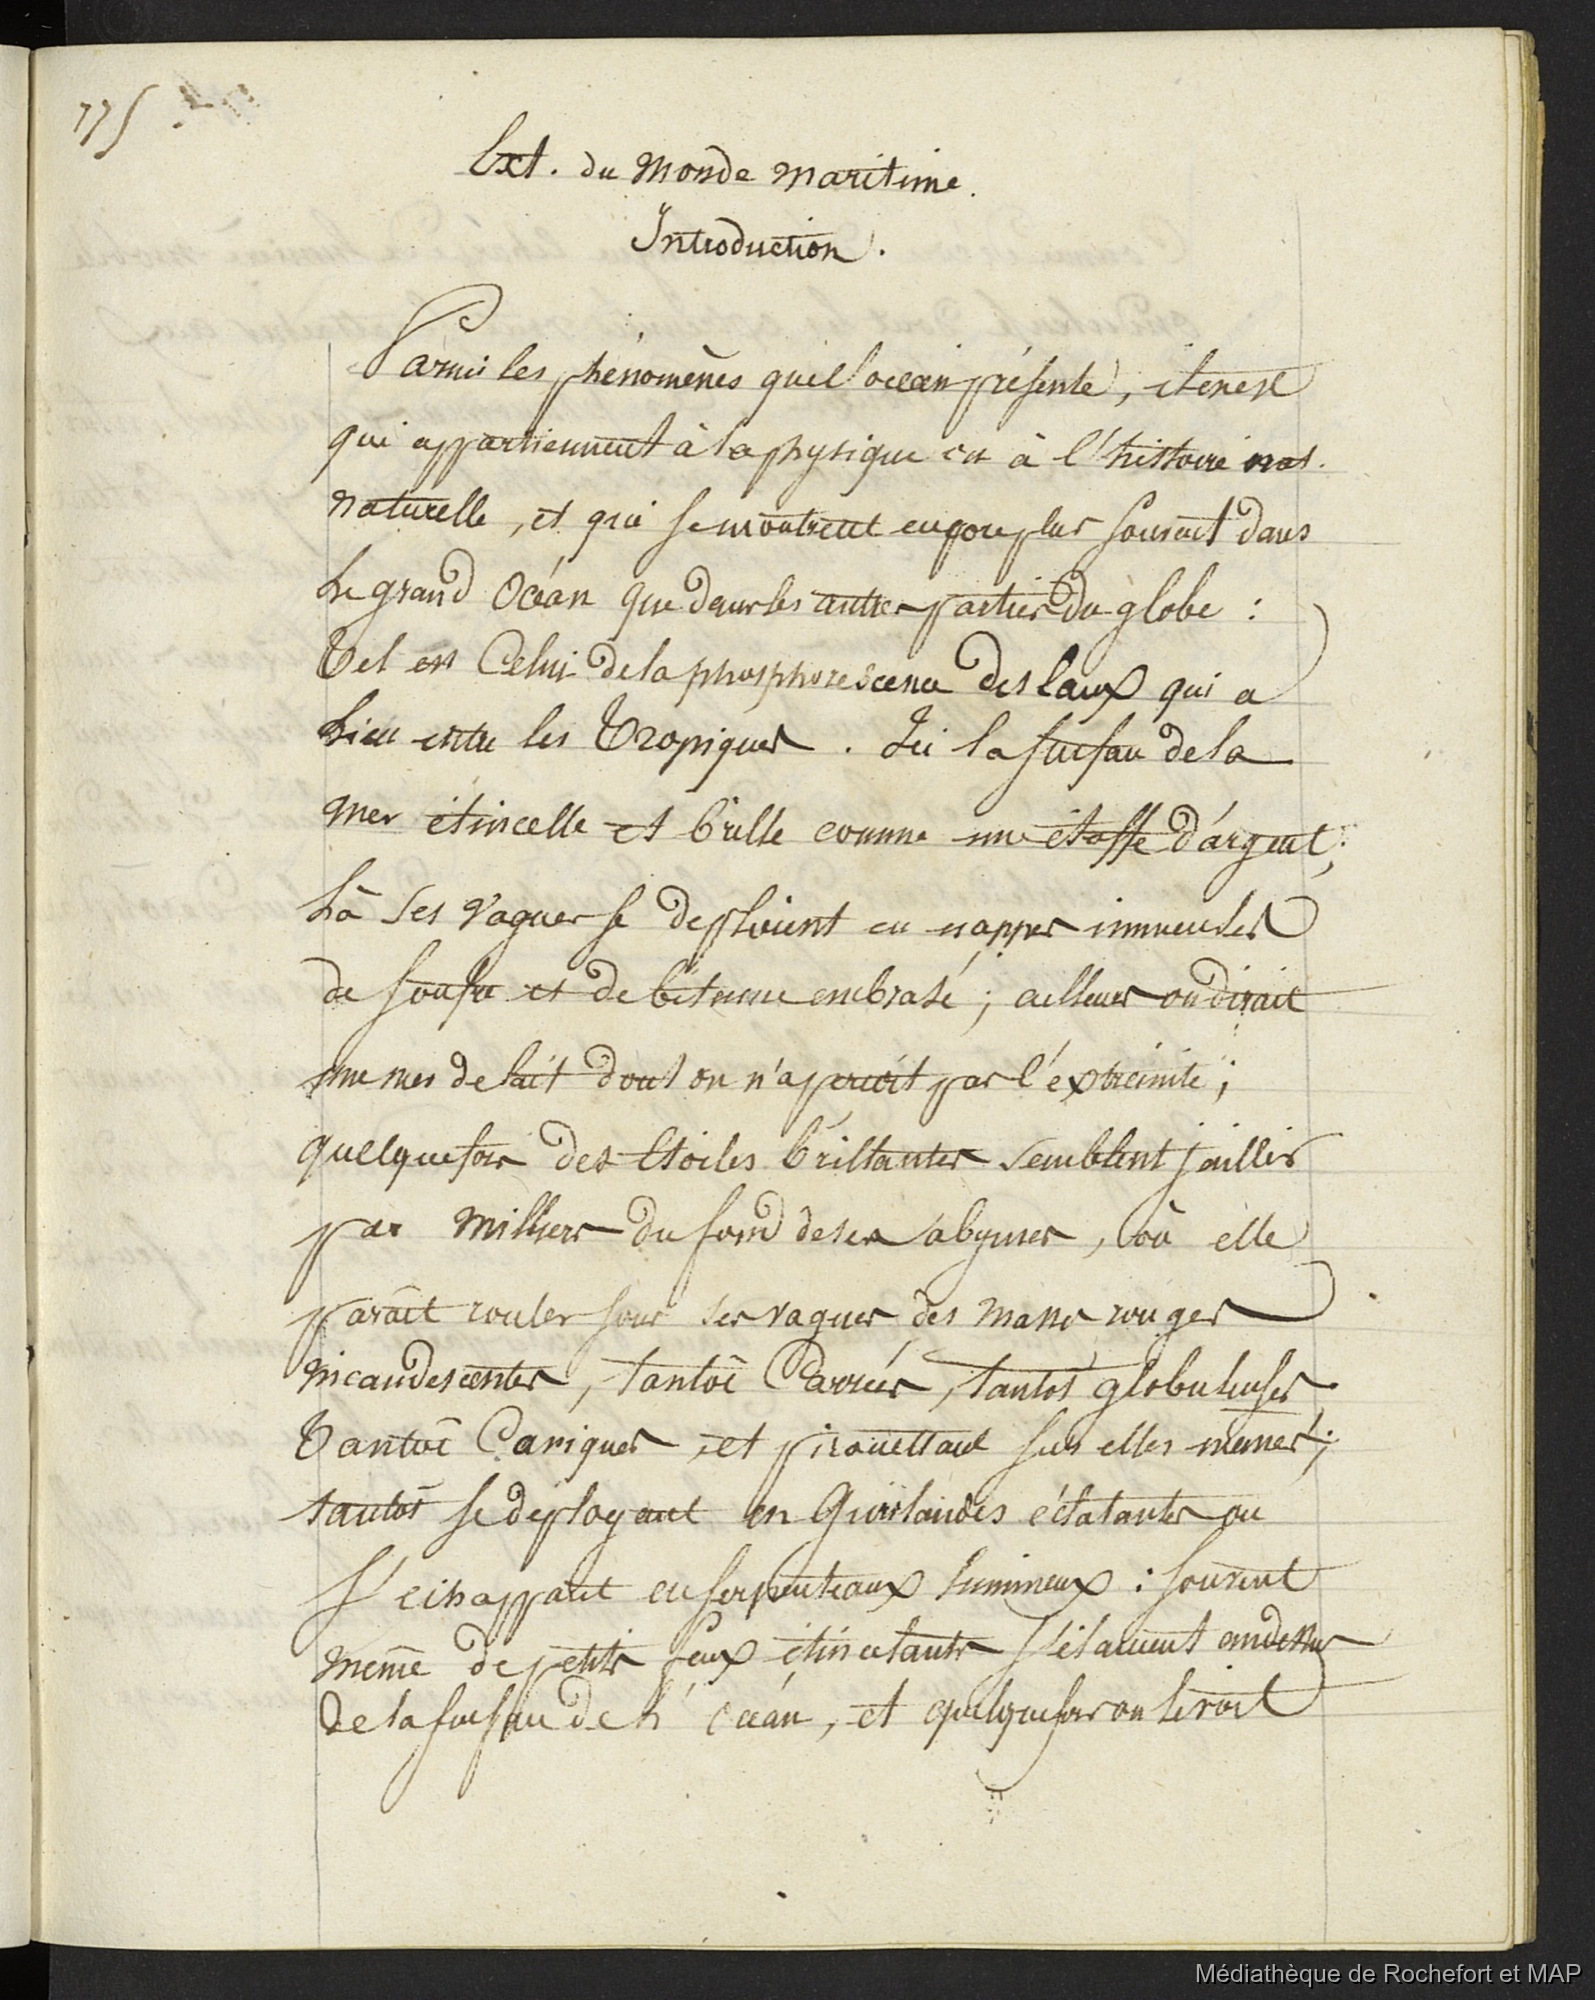 775
Ext. du Monde Maritime.
Introduction.
Parmi les phénomènes que l'océan présente, il en est
qui appartiennent à la physique ou à l'histoire nat.
naturelle, et qui se montrent encore plus souvent dans
le grand Océan que dans les autres parties du globe :
Tel est Celui de la phosphorescence des Eaux qui a
Lieu entre les Tropiques. Ici la surface de la
mer étincelle et brille comme une étoffe d'argent;
Là ses vagues se deploient en nappes immenses
de soufre et de bitume embrasé; ailleurs on dirait
une mer de lait dont on n'aperçoit pas l'extrémité;
quelquefois des Etoiles brillantes semblent jaillir
par Milliers du fond de ses abymes, où elle
paraît rouler sous ses vagues des masses rouges
incandescentes, tantôt Carrées, tantôt globuleuses
Tantôt Coniques, et pirouettant sur elles mêmes;
tantôt se déployant en Guirlandes éclatantes ou
s'échappant en serpenteaux lumineux : souvent
même de petits feux étincelants s'élancent au dessus
de la surface de l'océan, et quelquefois on le voit
Médiathèque de Rochefort et MAP